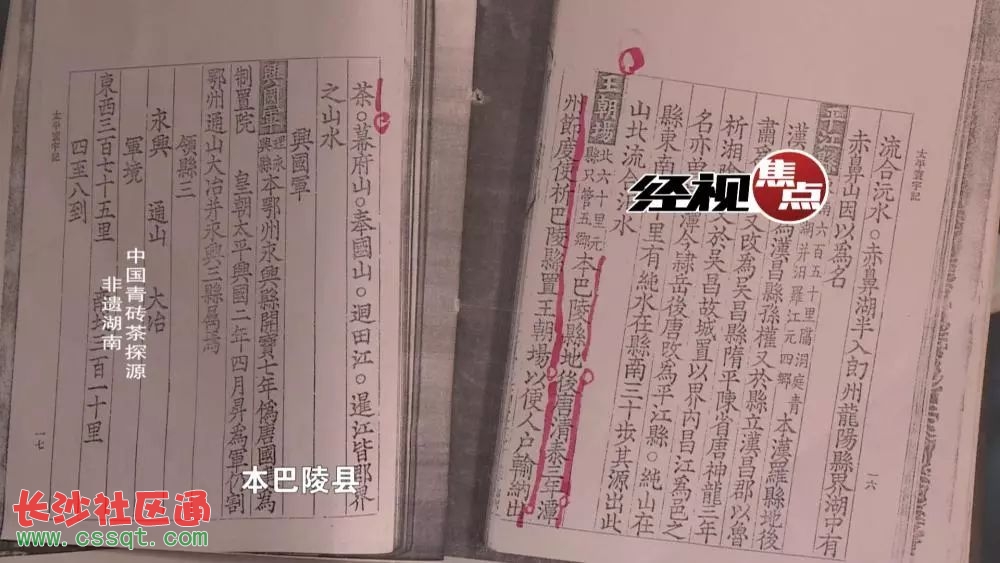 太平寰宇記
一六
流合沅水○赤鼻湖半入朗州龍陽縣界湖中有
赤鼻山因以為名
平江縣 六百五十里臨洞庭青
湖并汨羅江元四鄉 本漢羅縣地後
漢 為漢昌縣孫權又於縣立漢昌郡以魯
肅 又改為吳昌縣隋平陳省唐神龍三年
析湘陰 於吳昌故城置以界內昌江為邑之
名亦曰 潭今隸岳後唐改為平江縣○純山在
縣東南 里有純水在縣南三十步其源出此
山北流合 水
王朝場 北六十里元
縣只管五鄉 本巴陵縣地後唐清泰三年潭
州節度使析巴陵縣置王朝場以便人户輸納出
茶○幕府山○奉國山○迴田江○暹江皆郡界
之山水
興國軍
興國軍 理永
興縣 本鄂州永興縣開寶七年偽唐國 為
制置院 皇朝太平興國二年四月昇為軍仍割
鄂州通山大冶并永興三縣 焉
領縣三
永興 通山 大冶
軍境
東西三百七十五里 南北三百一十里
四至八到
太平寰宇記
一七
经视焦点
中国青砖茶探源
非遗湖南
本巴陵县
长沙社区通
www.cssqt.com